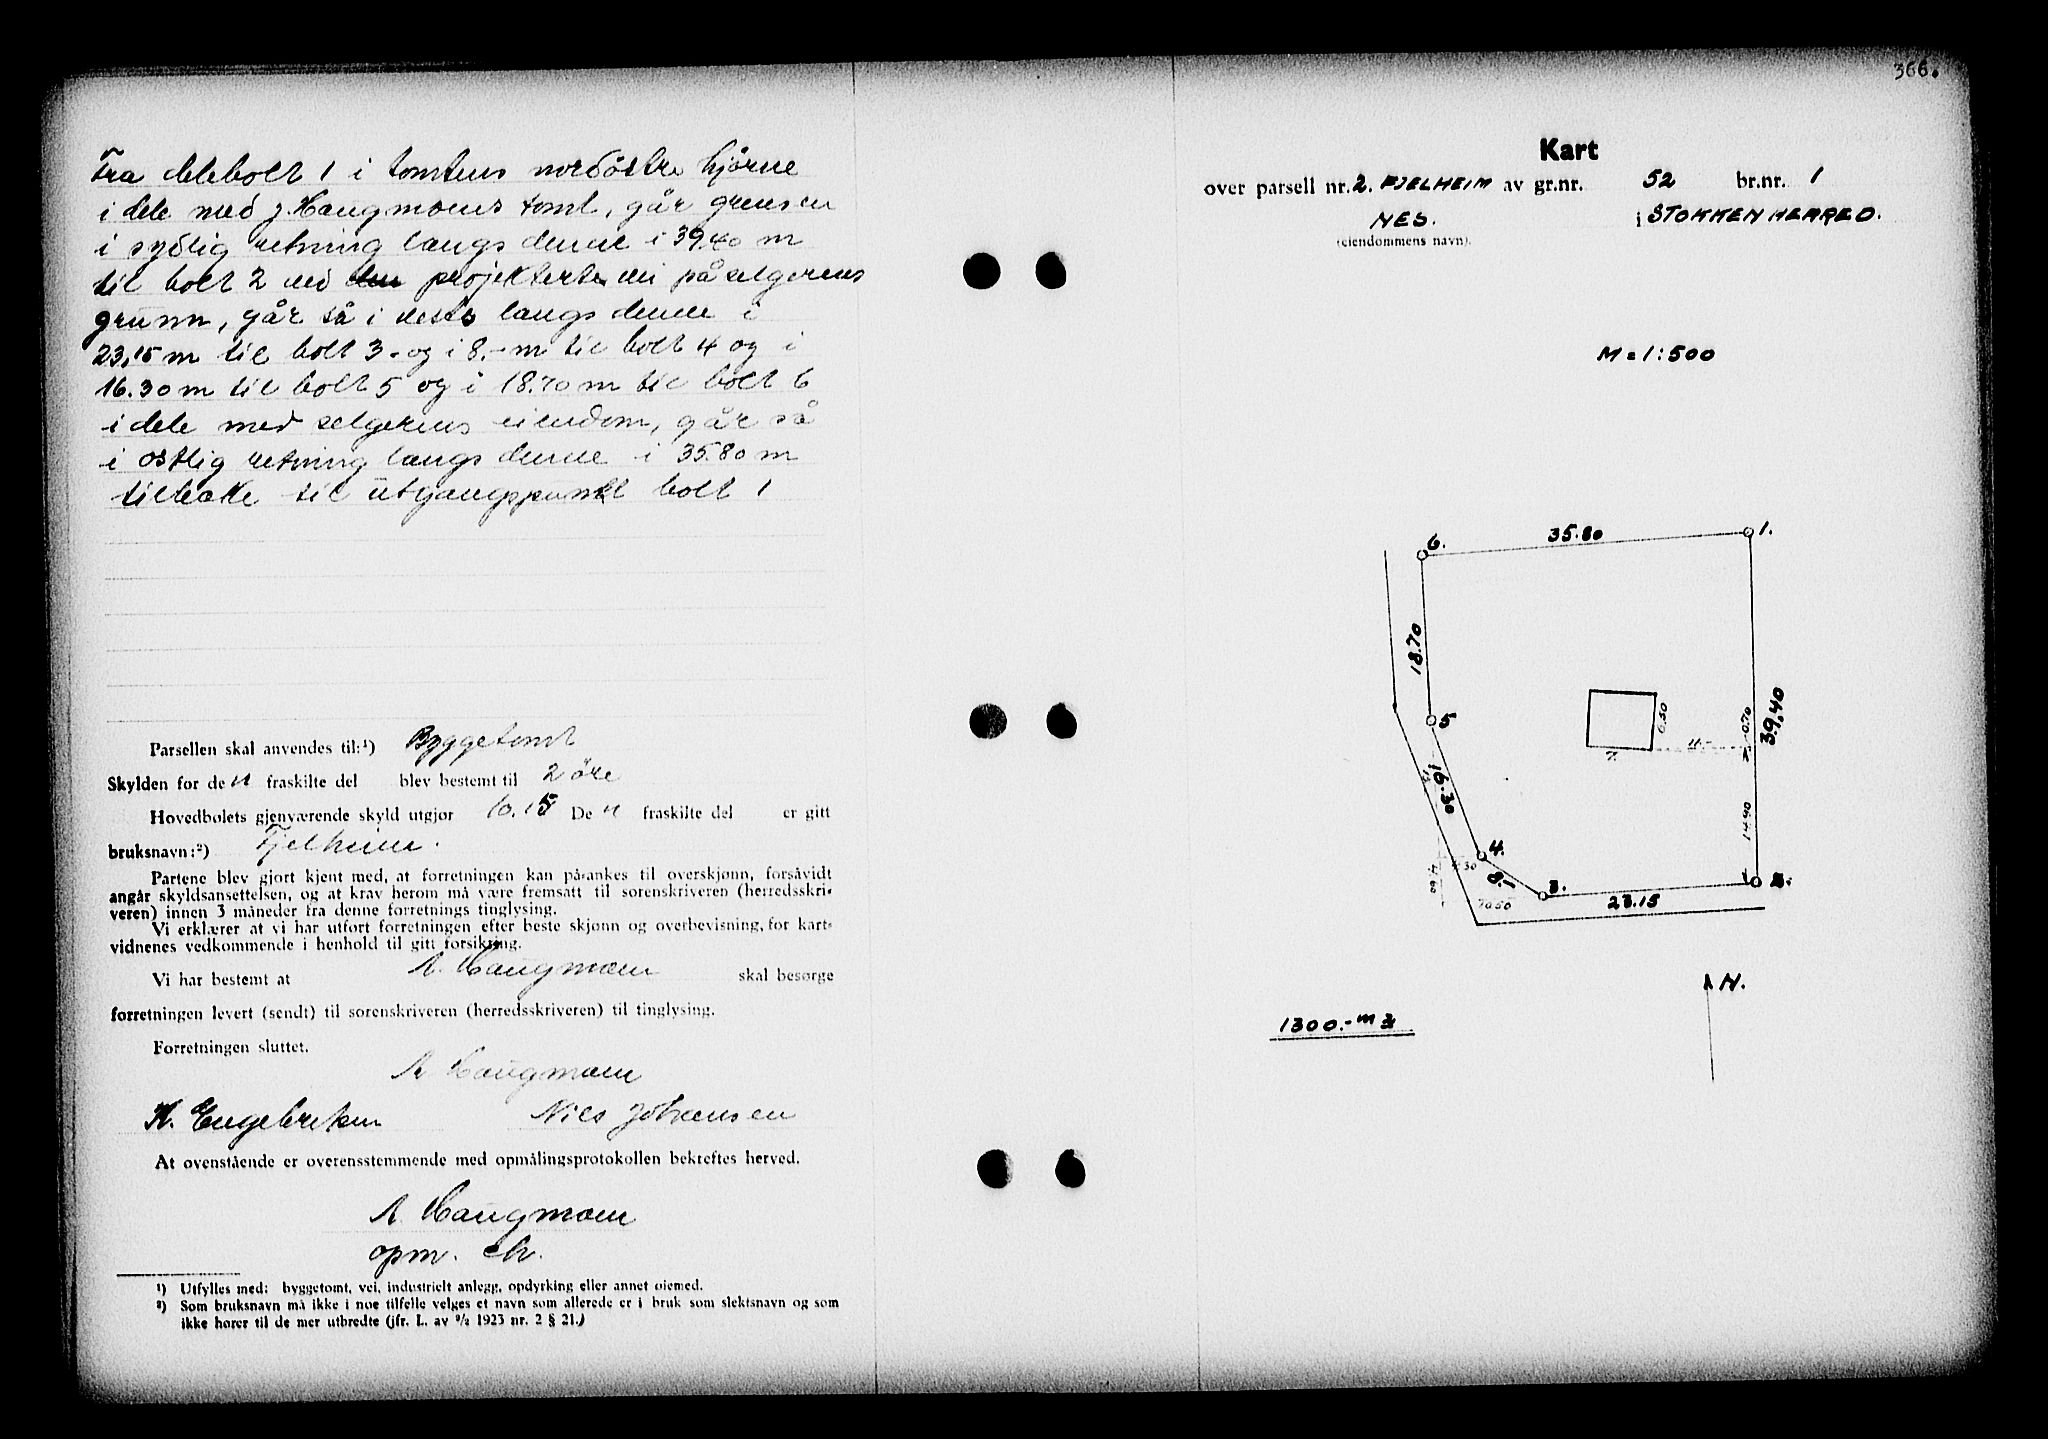 Fra delebolt 1 i tomtens nordöstre hjörne
i dele med J. Haugmoens tomt, går grensen
i sydlig retning langs denne i 39.40 m
til bolt 2 ved projekterte vei på selgerens
grunn, går så i vest langs denne i
23,15 m til bolt 3 - og i 8.- m til bolt 4 og i
16.30 m til bolt 5 og i 18.70 m til bolt 6
i dele med selgerens eiendom, går så
i östlig retning langs denne i 35.80 m
tilbake til utgangspunkt bolt 1
Parsellen skal anvendes til:¹) Byggetomt
Skylden for den fraskilte del blev bestemt til 2 öre
Hovedbølets gjenværende skyld utgjør 10.15 Den fraskilte del er gitt
bruksnavn:²) Fjelheim.
Partene blev gjort kjent med, at forretningen kan påankes til overskjønn, forsåvidt
angår skyldsansettelsen, og at krav herom må være fremsatt til sorenskriveren (herredsskri-
veren) innen 3 måneder fra denne forretnings tinglysing.
Vi erklærer at vi har utført forretningen efter beste skjønn og overbevisning, for kart-
vidnenes vedkommende i henhold til gitt forsikring.
Vi har bestemt at A. Haugmoen skal besørge
forretningen levert (sendt) til sorenskriveren (herredsskriveren) til tinglysing.
Forretningen sluttet.
A Haugmoen
K. Engebretsen Nils Johansen
At ovenstående er overensstemmende med opmålingsprotokollen bekreftes herved.
A. Haugmoen
opm. ch.
¹) Utfylles med: byggetomt, vei, industrielt anlegg, opdyrking eller annet øiemed.
²) Som bruksnavn må ikke i noe tilfelle velges et navn som allerede er i bruk som slektsnavn og som
ikke hører til de mer utbredte (jfr. L. av ⁹/₂ 1923 nr. 2 § 21.)
366.
Kart
over parsell nr. 2. FJELHEIM av gr.nr. 52 br.nr. 1
NES. i STOKKEN HERRED.
(eiendommens navn).
M = 1:500
6. 35.80 1.
18.70
5
6.50
0.70
39.40
7. 11.-
16.30
14.90
4.
4.30
8.-
3. 23.15 2.
10.50
N.
1300.- m2